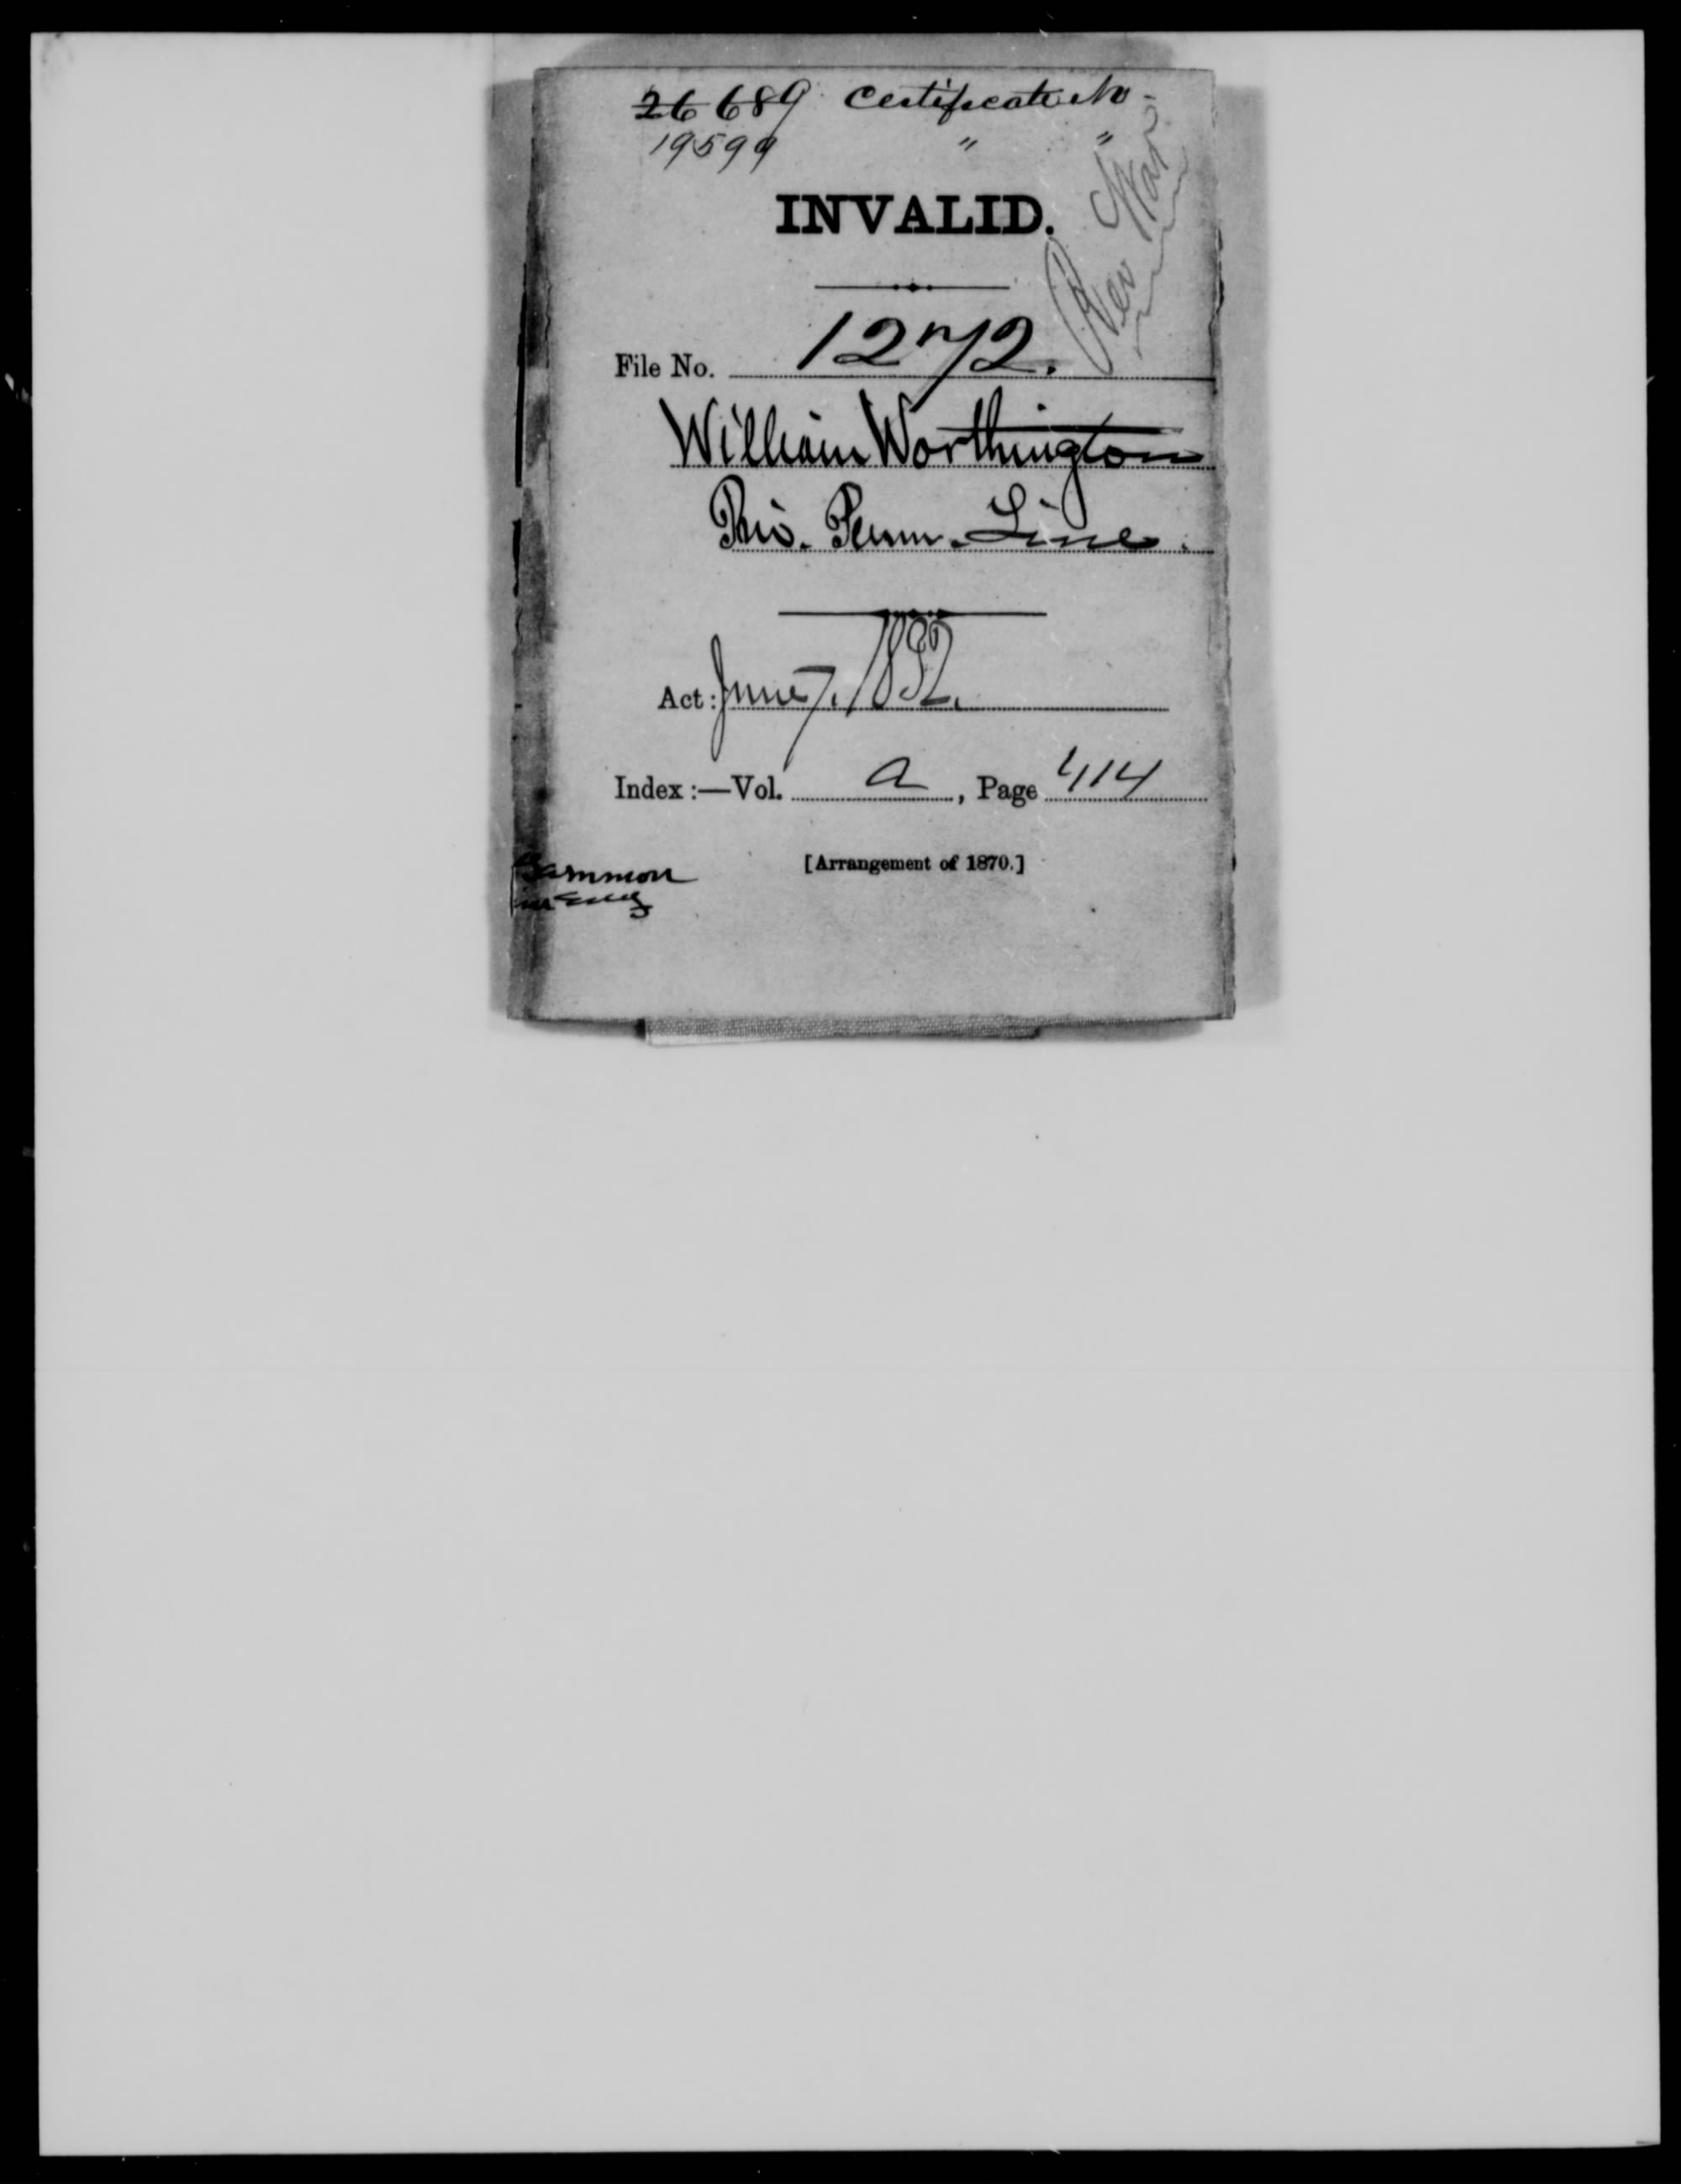 26689 Certificate No -
19599 " "
Rev War
INVALID.
File No. 1272.
William Worthington
Priv. Penn. Line.
Act: June 7. 1832.
Index:—Vol. A, Page 414
[Arrangement of 1870.]
Gammon